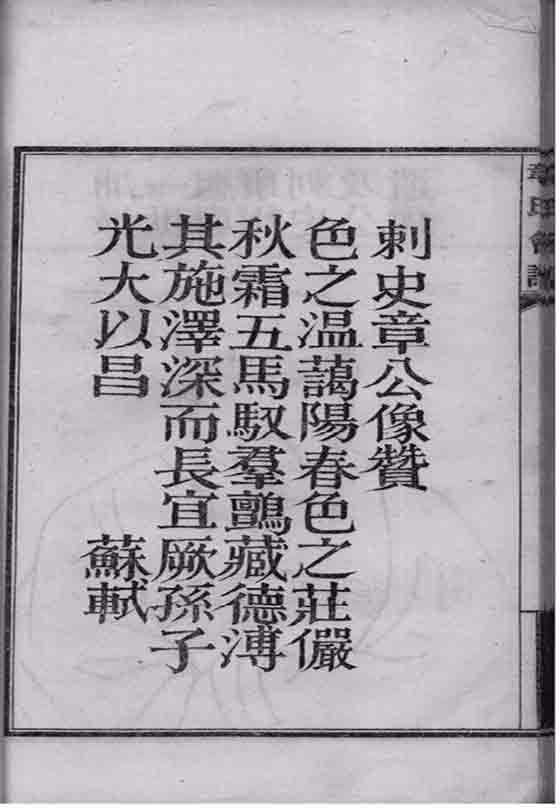 刺史章公像贊
色之温藹陽春色之莊儼
秋霜五馬馭羣鸇藏德溥
其施澤深而長宜厥孫子
光大以昌　蘇軾
章氏會譜